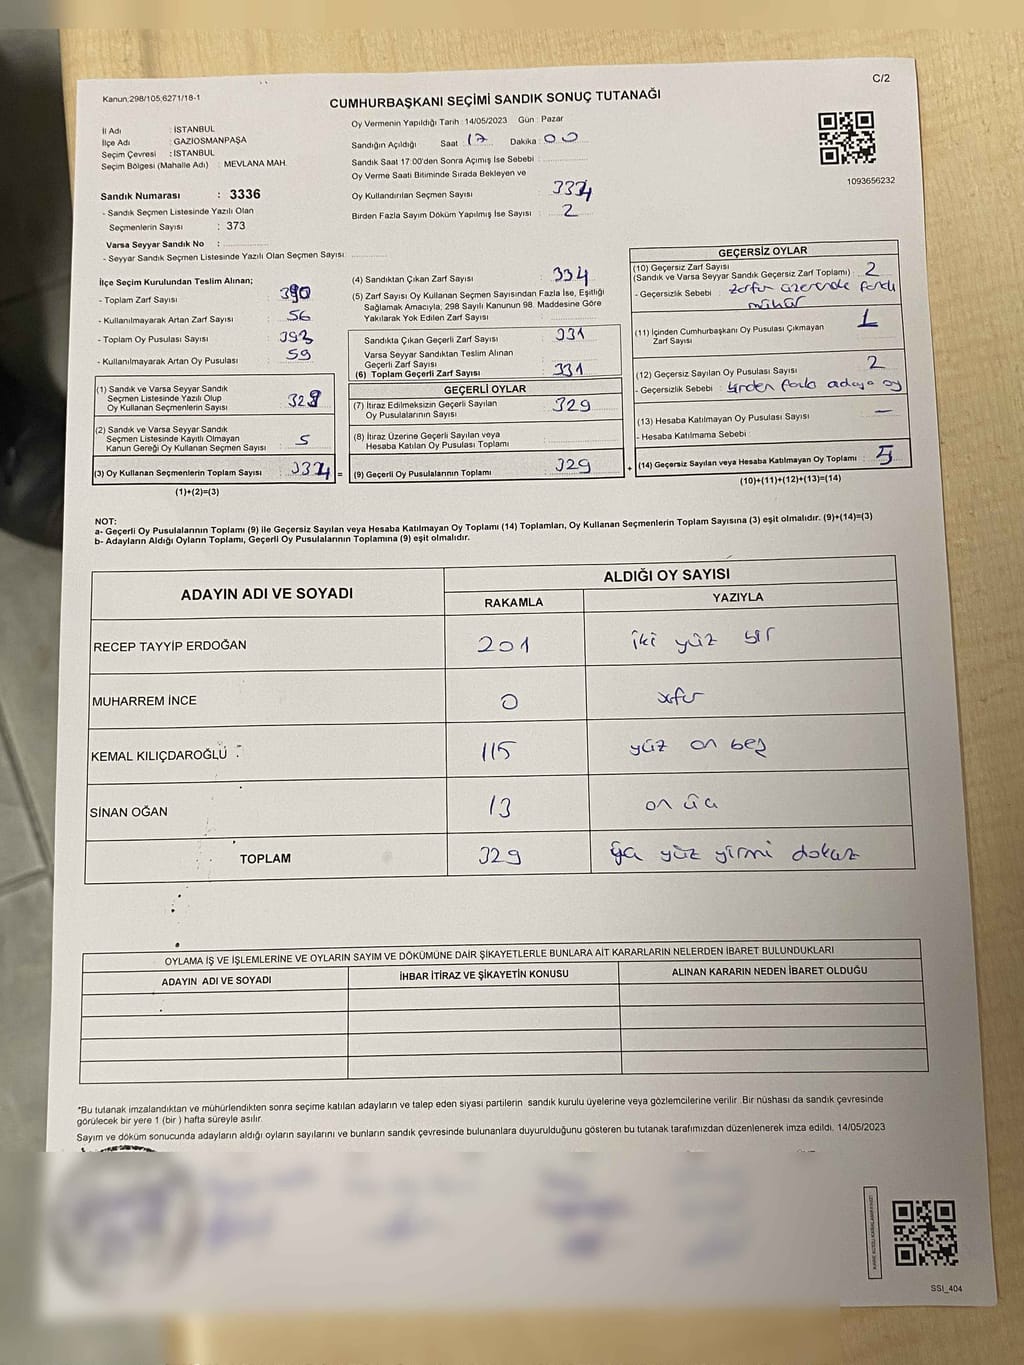 C/2
Kanun,298/105,6271/18-1
CUMHURBAŞKANI SEÇİMİ SANDIK SONUÇ TUTANAĞI
İl Adı : İSTANBUL
İlçe Adı : GAZİOSMANPAŞA
Seçim Çevresi : İSTANBUL
Seçim Bölgesi (Mahalle Adı) : MEVLANA MAH.
Sandık Numarası : 3336
- Sandık Seçmen Listesinde Yazılı Olan
Seçmenlerin Sayısı : 373
Varsa Seyyar Sandık No :
- Seyyar Sandık Seçmen Listesinde Yazılı Olan Seçmen Sayısı:
Oy Vermenin Yapıldığı Tarih :14/05/2023 Gün : Pazar
Sandığın Açıldığı Saat : 17 Dakika : 00
Sandık Saat 17:00'den Sonra Açımış İse Sebebi :
Oy Verme Saati Bitiminde Sırada Bekleyen ve
Oy Kullandırılan Seçmen Sayısı : 334
Birden Fazla Sayım Döküm Yapılmış İse Sayısı : 2
1093656232
İlçe Seçim Kurulundan Teslim Alınan;
- Toplam Zarf Sayısı : 390
- Kullanılmayarak Artan Zarf Sayısı : 56
- Toplam Oy Pusulası Sayısı : 393
- Kullanılmayarak Artan Oy Pusulası : 59
(1) Sandık ve Varsa Seyyar Sandık
Seçmen Listesinde Yazılı Olup
Oy Kullanan Seçmenlerin Sayısı : 329
(2) Sandık ve Varsa Seyyar Sandık
Seçmen Listesinde Kayıtlı Olmayan
Kanun Gereği Oy Kullanan Seçmen Sayısı : 5
(3) Oy Kullanan Seçmenlerin Toplam Sayısı : 334 =
(1)+(2)=(3)
(4) Sandıktan Çıkan Zarf Sayısı : 334
(5) Zarf Sayısı Oy Kullanan Seçmen Sayısından Fazla İse, Eşitliği
Sağlamak Amacıyla, 298 Sayılı Kanunun 98. Maddesine Göre
Yakılarak Yok Edilen Zarf Sayısı :
Sandıkta Çıkan Geçerli Zarf Sayısı : 331
Varsa Seyyar Sandıktan Teslim Alınan
Geçerli Zarf Sayısı :
(6) Toplam Geçerli Zarf Sayısı : 331
GEÇERLİ OYLAR
(7) İtiraz Edilmeksizin Geçerli Sayılan
Oy Pusulalarının Sayısı : 329
(8) İtiraz Üzerine Geçerli Sayılan veya
Hesaba Katılan Oy Pusulası Toplamı :
(9) Geçerli Oy Pusulalarının Toplamı : 329 +
GEÇERSİZ OYLAR
(10) Geçersiz Zarf Sayısı
(Sandık ve Varsa Seyyar Sandık Geçersiz Zarf Toplamı) : 2
- Geçersizlik Sebebi : zarfın üzerinde farklı
mühür
(11) İçinden Cumhurbaşkanı Oy Pusulası Çıkmayan
Zarf Sayısı : 1
(12) Geçersiz Sayılan Oy Pusulası Sayısı : 2
- Geçersizlik Sebebi : birden fazla adaya oy
(13) Hesaba Katılmayan Oy Pusulası Sayısı : —
- Hesaba Katılmama Sebebi :
(14) Geçersiz Sayılan veya Hesaba Katılmayan Oy Toplamı : 5
(10)+(11)+(12)+(13)=(14)
NOT:
a- Geçerli Oy Pusulalarının Toplamı (9) ile Geçersiz Sayılan veya Hesaba Katılmayan Oy Toplamı (14) Toplamları, Oy Kullanan Seçmenlerin Toplam Sayısına (3) eşit olmalıdır. (9)+(14)=(3)
b- Adayların Aldığı Oyların Toplamı, Geçerli Oy Pusulalarının Toplamına (9) eşit olmalıdır.
ADAYIN ADI VE SOYADI
ALDIĞI OY SAYISI
RAKAMLA YAZIYLA
RECEP TAYYİP ERDOĞAN 201 iki yüz bir
MUHARREM İNCE 0 sıfır
KEMAL KILIÇDAROĞLU 115 yüz on beş
SİNAN OĞAN 13 on üç
TOPLAM 329 üç yüz yirmi dokuz
OYLAMA İŞ VE İŞLEMLERİNE VE OYLARIN SAYIM VE DÖKÜMÜNE DAİR ŞİKAYETLERLE BUNLARA AİT KARARLARIN NELERDEN İBARET BULUNDUKLARI
ADAYIN ADI VE SOYADI İHBAR İTİRAZ VE ŞİKAYETİN KONUSU ALINAN KARARIN NEDEN İBARET OLDUĞU
*Bu tutanak imzalandıktan ve mühürlendikten sonra seçime katılan adayların ve talep eden siyasi partilerin sandık kurulu üyelerine veya gözlemcilerine verilir. Bir nüshası da sandık çevresinde
görülecek bir yere 1 (bir ) hafta süreyle asılır.
Sayım ve döküm sonucunda adayların aldığı oyların sayılarını ve bunların sandık çevresinde bulunanlara duyurulduğunu gösteren bu tutanak tarafımızdan düzenlenerek imza edildi. 14/05/2023
SSI_404